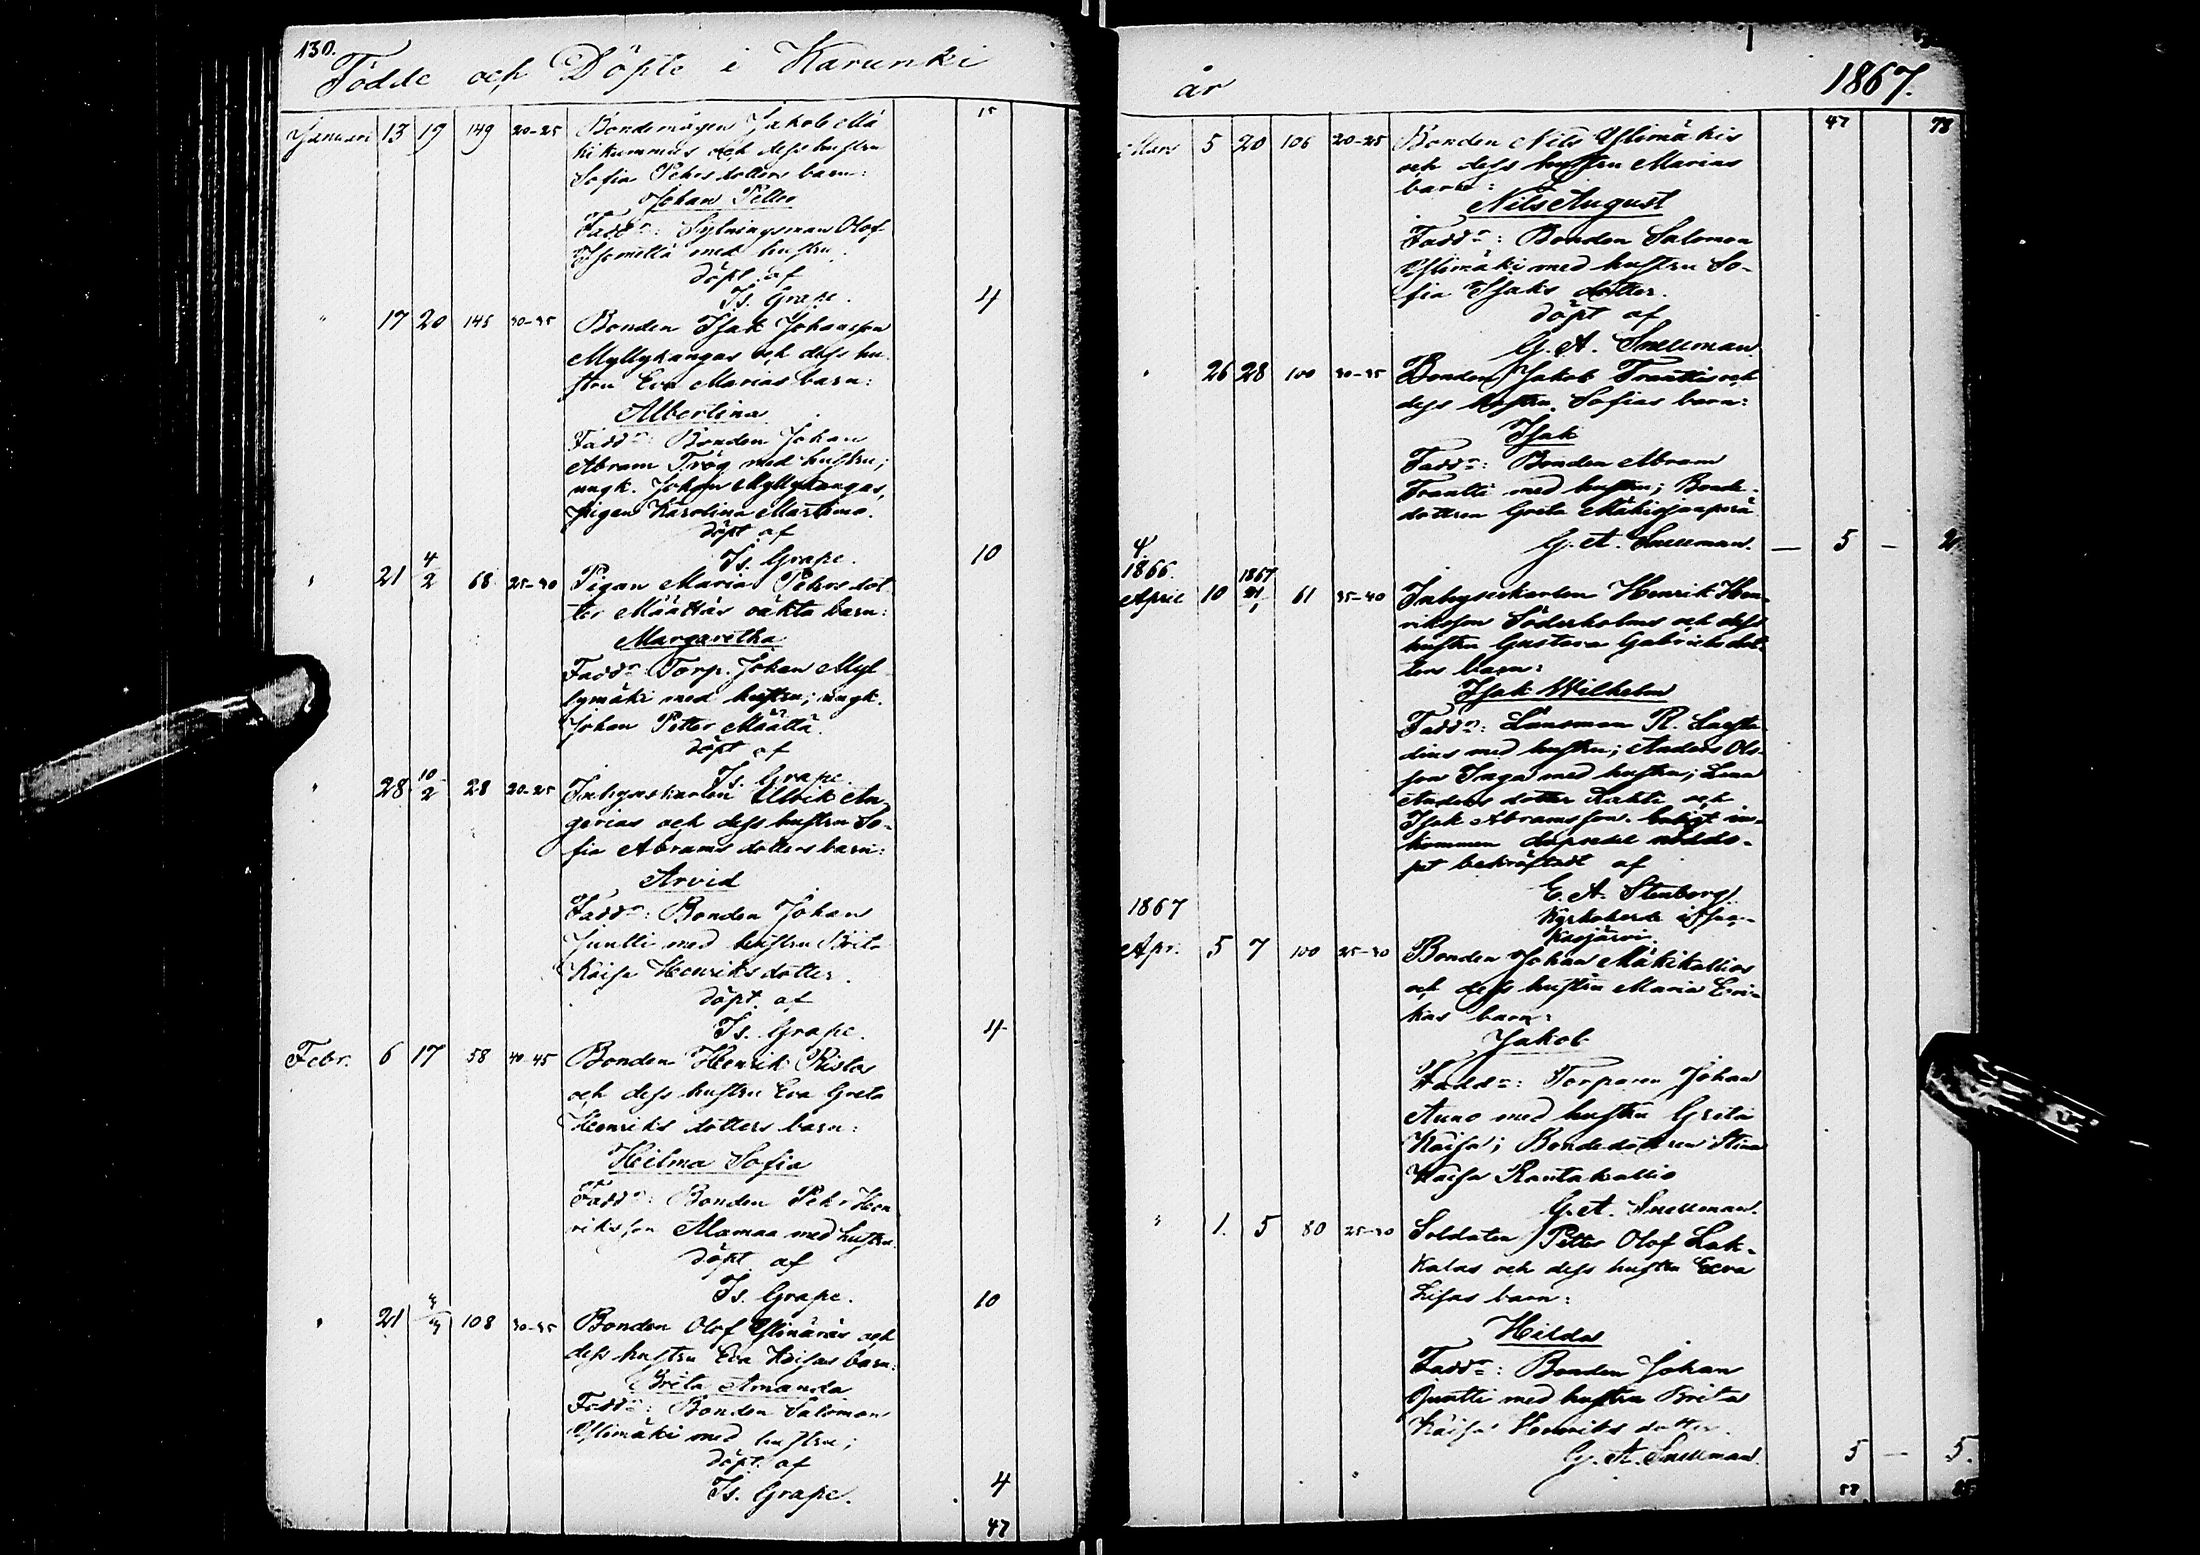 130.
Födde och Döpte i Karunki
15
Januari 13 19 149 20-25 Bondemågen Jakob Mä
kikummus och dess hustru
Sofia Pehrsdotters barn:
Johan Petter
Fadd:r: Sytningsman Olof
med hustru.
döpt af
Is. Grape. 4
" 17 20 145 30-35 Bonden Isak Johansson
Myllykangas och dess hu-
stru Eva Marias barn:
Albertina
Fadd:r: Bonden Johan
Abram Fröa med hustru;
ungk. Johan Myllykangas,
pigan Karolina Martimo.
döpt af
Is. Grape. 10
" 21 4/2 68 25-30 Pigan Maria Pehrsdot
ter Määttäs oäkta barn:
Margaretha
Fadd:r: Torp. Johan Myl-
lymäki med hustru; ungk.
Johan Petter Määttä.
döpt af
Is. Grape.
" 28 10/2 28 20-25 Inhyseskarlen Ulrik An-
gerias och dess hustru So-
fia Abramsdotters barn:
Arvid
Fadd:r: Bonden Johan
Juntti med hustru Brita
Kaisa Henriksdotter.
döpt af
Is. Grape. 4
Febr. 6 17 58 40-45 Bonden Henrik Ristos
och dess hustru Eva Greta
Henriks dotters barn:
Hilma Sofia
Fadd:r: Bonden Pehr Hen
riksson Alamaa med hustru.
döpt af
Is. Grape. 10
" 21 108 30-35 Bonden Olof och
dess hustru Eva Kaisas barn:
Brita Amanda
Fadd:r: Bonden Salomon
Ylimäki med hustru;
döpt af
Is. Grape. 4
47
år 1867.
47 78
Mars 5 20 106 20-25 Bonden Nils Ylimäkis
och dess hustru Marias
barn:
Nils August
Fadd:r: Bonden Salomon
Ylimäki med hustru So-
fia Isaks dotter.
döpt af
G. A. Snellman
" 26 28 100 30-35 Bonden Jakob Frantti och
dess hustru Sofias barn:
Isak
Fadd:r: Bonden Abram
Frantti med hustru; Bonde-
dottren Greta
G. A. Snellman. — 5 —
1866.
April 10 1867 61 35-40 Inhyseskarlen Henrik Hen-
riksson Söderholms och dess
hustru Gustava Gabrielsdot-
ters barn:
Isak Wilhelm
Fadd:r: Länsman R. Laesta-
dius med hustru; Anders Ols-
son Inga med hustru; Lena
Anders dotter Lahti och
Isak Abramsson. enligt in-
kommen dopsedel nöddo-
pet bekräftadt af
E. A. Stenborg
Kyrkoherde i
1867
Apr. 5 7 100 25-30 Bonden Johan Mäkikallios
och dess hustru Maria Eri-
kas barn:
Jakob
Fadd:r: Torparen Johan
Auno med hustru Greta
Kaisa; Bondedottren Stina
Kaisa Rantakallio
G. A. Snellman.
" 1. 5 80 25-30 Soldaten Petter Olof Lak-
kalas och dess hustru Eva
Lisas barn:
Hilda
Fadd:r: Bonden Johan
Juntti med hustru Brita
Kaisa Henriks dotter.
G. A. Snellman. 5 — 5.